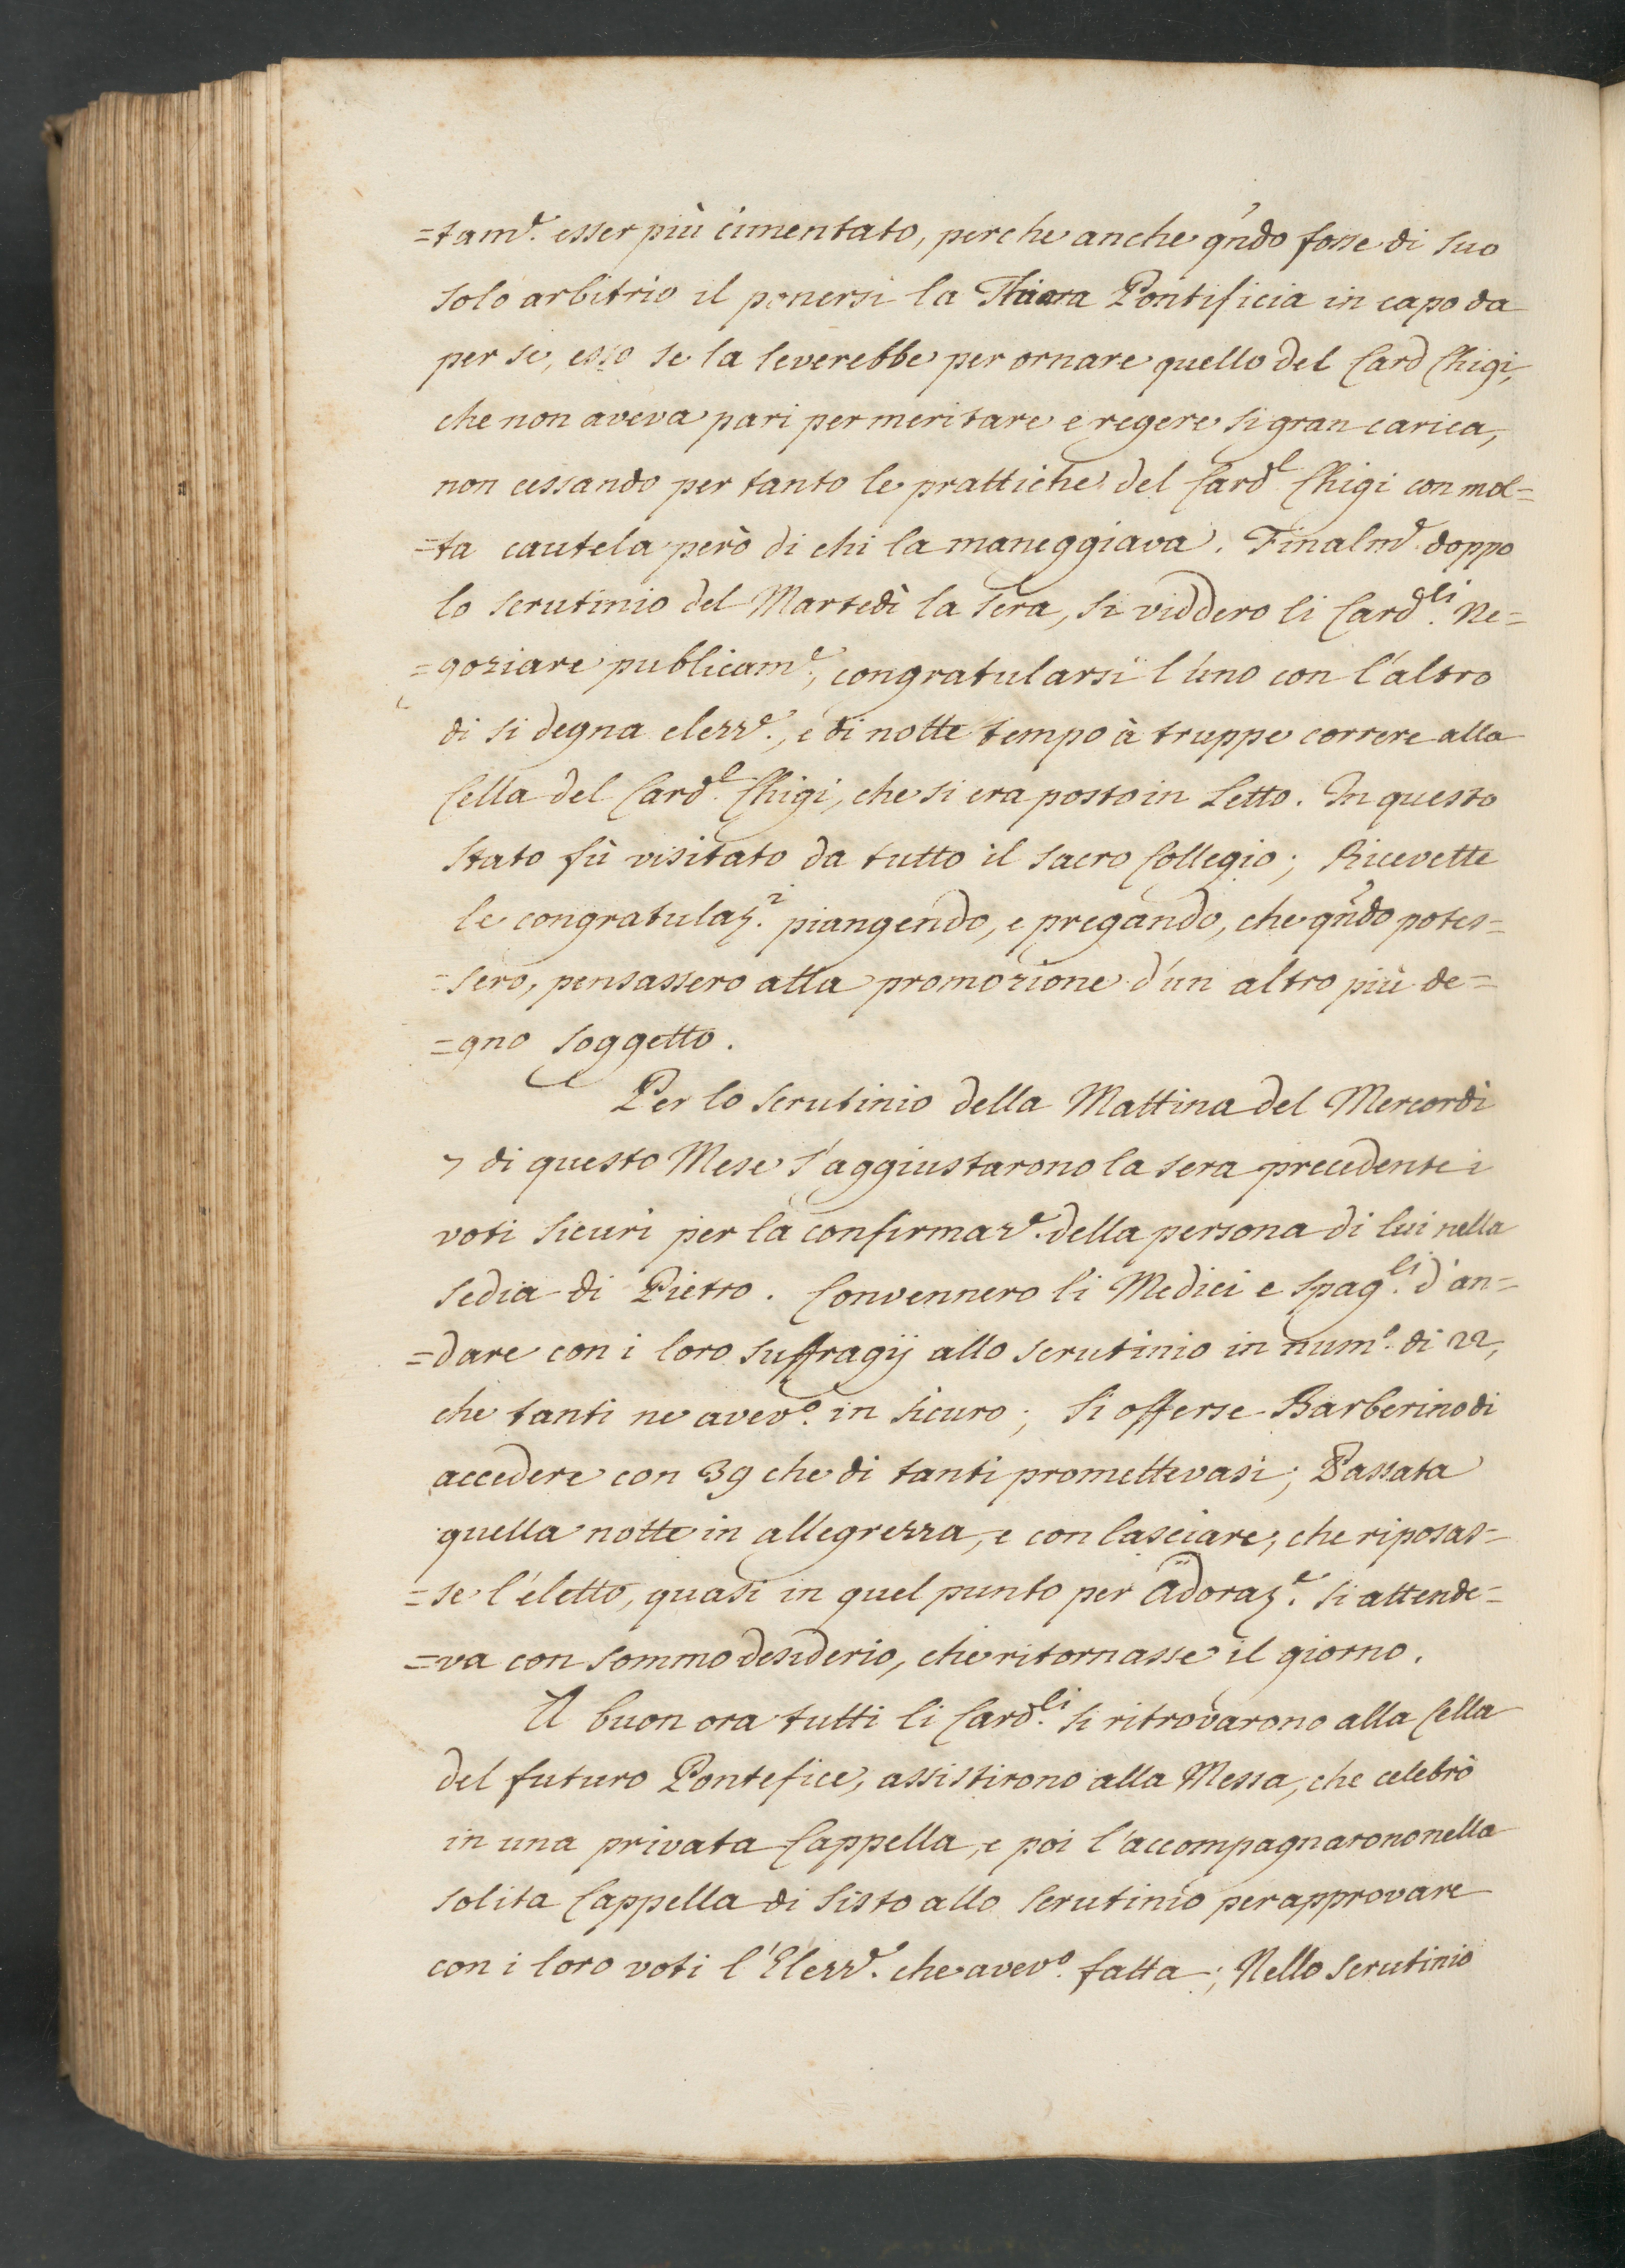 =tam.e esser più cimentato, perche anche q̃ndo fosse di suo
solo arbitrio il ponersi la Thiara Pontificia in capo da
per se, esso se la leverebbe per ornare quello del Card Chigi,
che non aveva pari per meritare e regere si gran carica,
non cessando per tanto le prattiche del Card.l Chigi con mol=
=ta cautela però di chi la maneggiava. Finalm.e doppo
lo scrutinio del Martedì la sera, si viddero li Card.li Ne=
=goziare publicam.e, congratularsi l'uno con l'altro
di si degna elezz.e, e di notte tempo à truppe correre alla
Cella del Card.l Chigi, che si era posto in Letto. In questo
stato fù visitato da tutto il Sacro Collegio; Ricevette
le congratulaz.i piangendo, e pregando, che q̃ndo potes=
=sero, pensassero alla promozione d'un altro più de=
=gno soggetto.
Per lo scrutinio della Mattina del Mercordì
7 di questo Mese s'aggiustarono la sera precedente i
voti sicuri per la confirmaz.e della persona di lui nella
Sedia di Pietro. Convennero li Medici e Spag.li d'an=
=dare con i loro suffragij allo scrutinio in num.o di 22,
che tanti ne avev.o in sicuro; si offerse Barberino di
accedere con 39 che di tanti promettevasi; Passata
quella notte in allegrezza, e con lasciare, che riposas=
=se l'eletto, quasi in quel punto per Adoraz.e si attende=
=va con sommo desiderio, che ritornasse il giorno.
A buon ora tutti li Card.li si ritrovarono alla Cella
del futuro Pontefice, assistirono alla Messa, che celebrò
in una privata Cappella, e poi l'accompagnarono nella
solita Cappella di Sisto allo Scrutinio per approvare
con i loro voti l'Elezz.e che avev.o fatta; Nello scrutinio